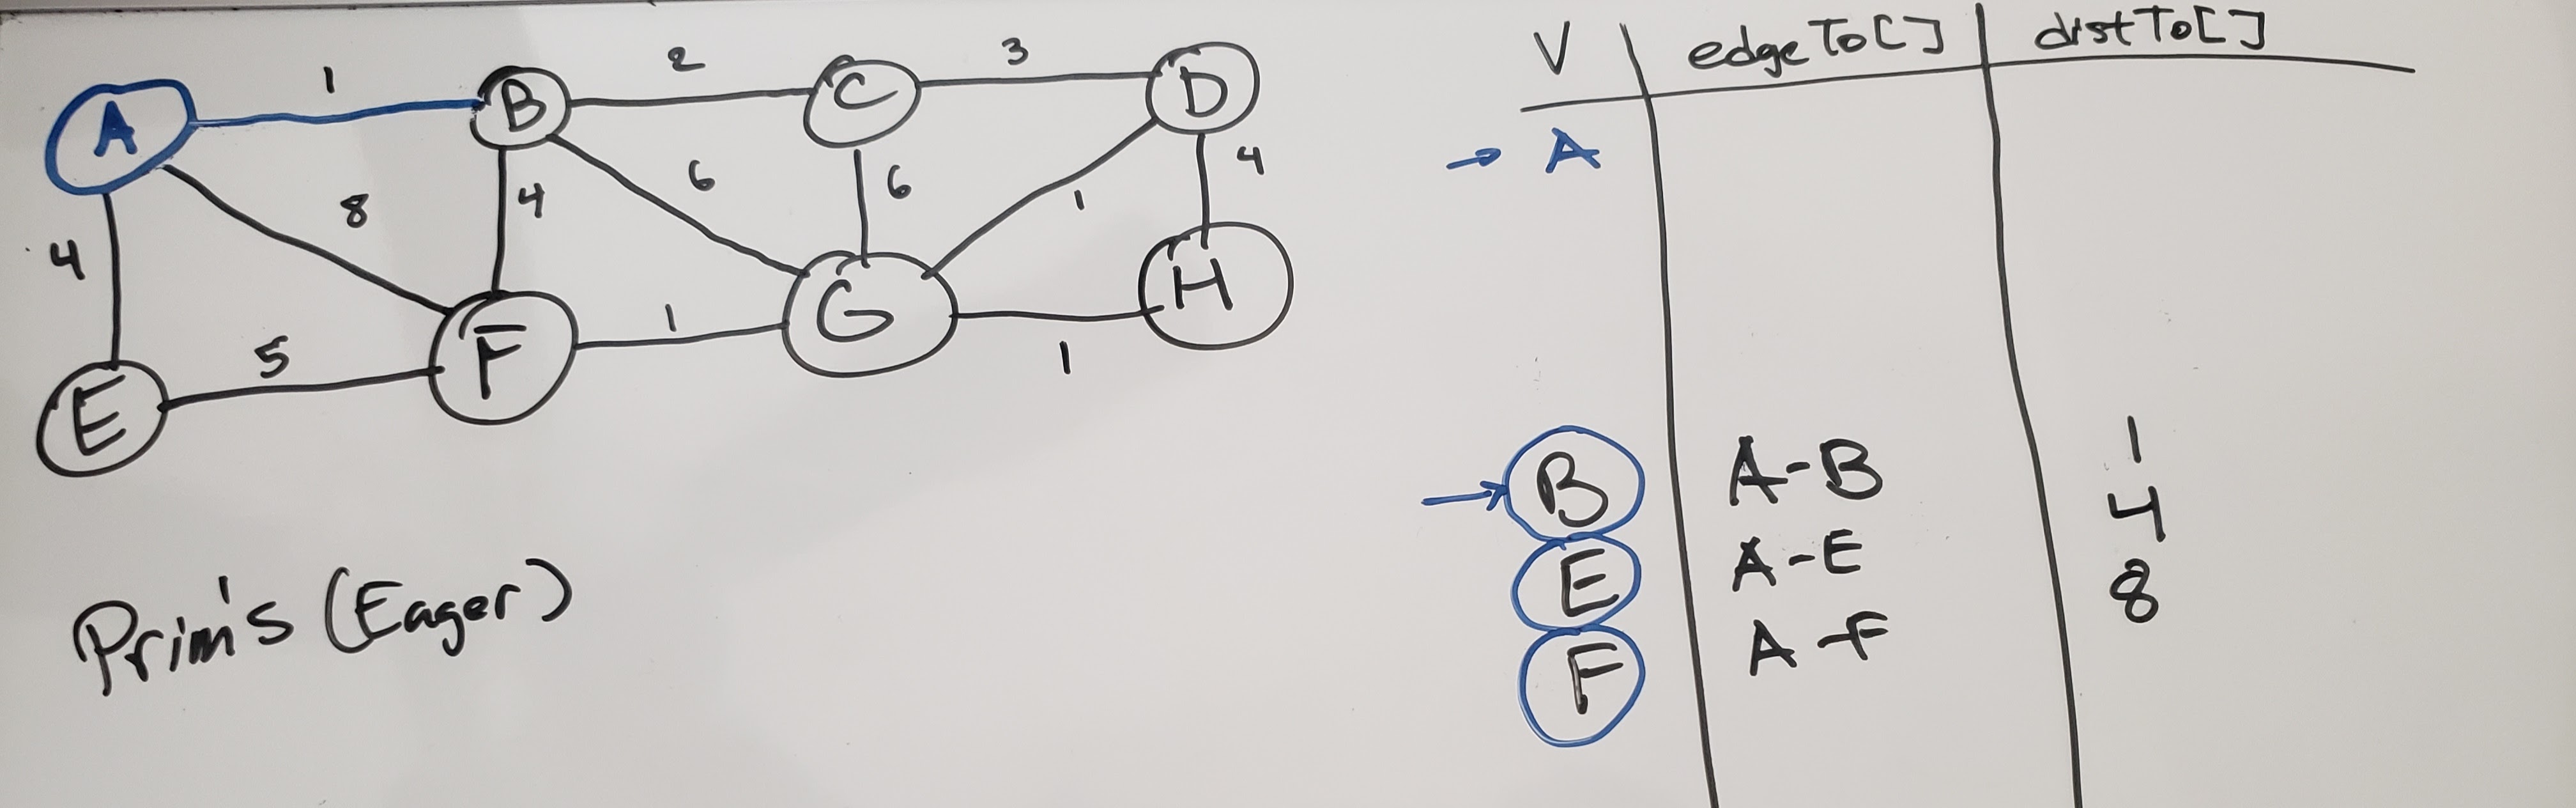 1 2 3
A B C D
8 4 6 6 1 4
4
E 5 F 1 G 1 H
Prim's (Eager)
V edgeTo[] distTo[]
→ A
→ B A-B 1
E A-E 4
F A-F 8